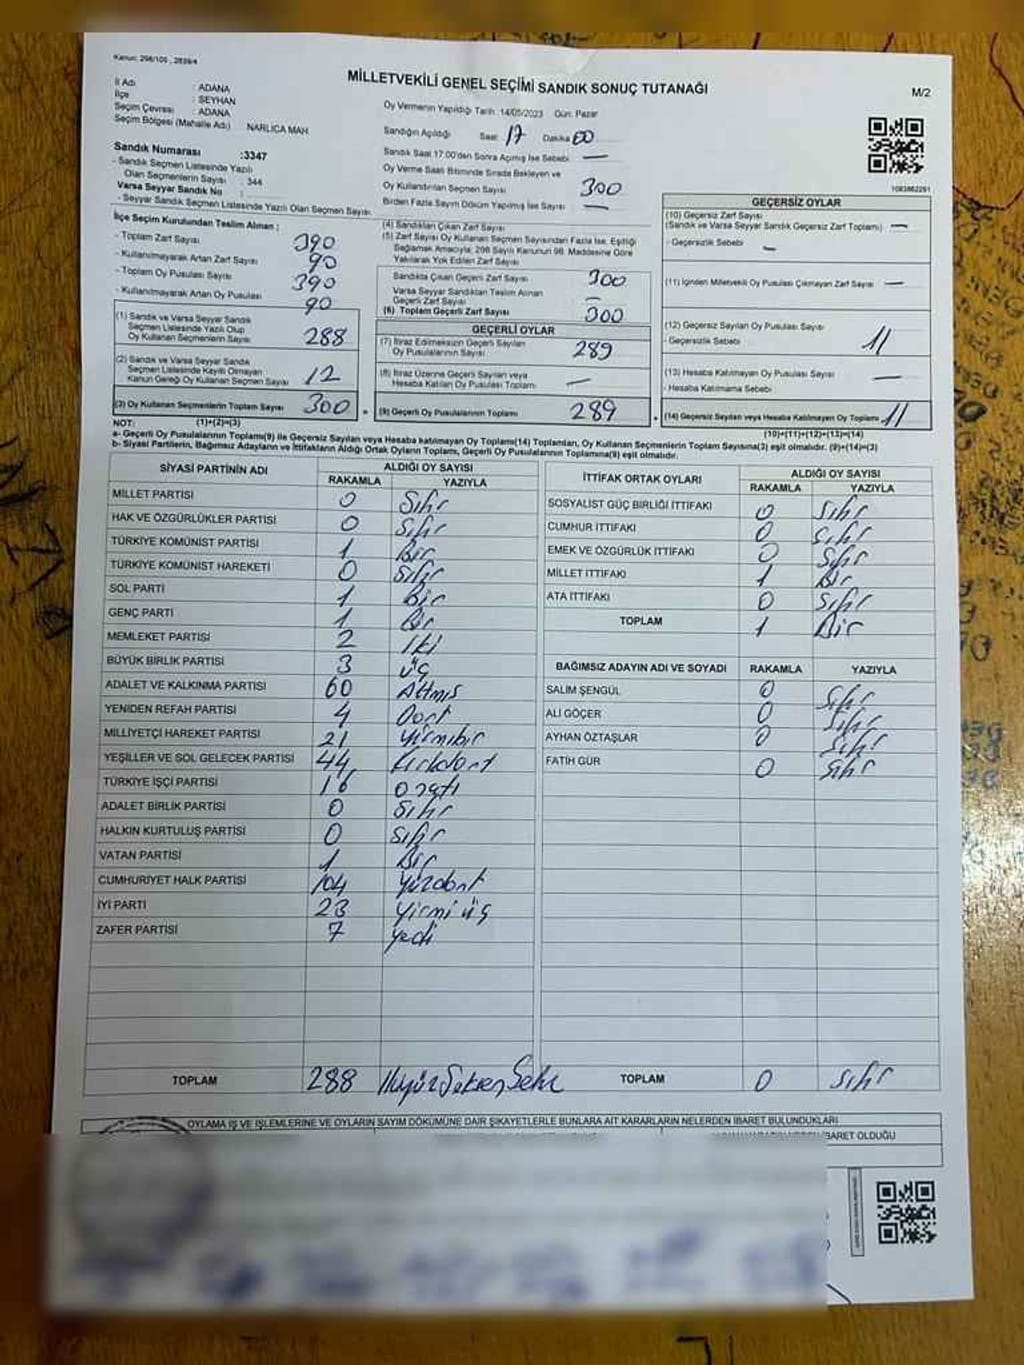 Kanun: 298/105 , 2839/4
MİLLETVEKİLİ GENEL SEÇİMİ SANDIK SONUÇ TUTANAĞI
M/2
İl Adı : ADANA
İlçe : SEYHAN
Seçim Çevresi : ADANA
Seçim Bölgesi (Mahalle Adı) NARLICA MAH
Sandık Numarası :3347
- Sandık Seçmen Listesinde Yazılı
Olan Seçmenlerin Sayısı : 344
Varsa Seyyar Sandık No :
- Seyyar Sandık Seçmen Listesinde Yazılı Olan Seçmen Sayısı
Oy Vermenin Yapıldığı Tarih: 14/05/2023 Gün: Pazar
Sandığın Açıldığı Saat: 17 Dakika: 00
Sandık Saat 17:00'den Sonra Açılmış İse Sebebi: —
Oy Verme Saati Bitiminde Sırada Bekleyen ve
Oy Kullandırılan Seçmen Sayısı 300
Birden Fazla Sayım Döküm Yapılmış İse Sayısı —
1083862291
İlçe Seçim Kurulundan Teslim Alınan ;
- Toplam Zarf Sayısı 390
- Kullanılmayarak Artan Zarf Sayısı 90
- Toplam Oy Pusulası Sayısı 390
- Kullanılmayarak Artan Oy Pusulası 90
(1) Sandık ve Varsa Seyyar Sandık
Seçmen Listesinde Yazılı Olup
Oy Kullanan Seçmenlerin Sayısı 288
(2) Sandık ve Varsa Seyyar Sandık
Seçmen Listesinde Kayıtlı Olmayan
Kanun Gereği Oy Kullanan Seçmen Sayısı 12
(3) Oy Kullanan Seçmenlerin Toplam Sayısı 300
(4) Sandıktan Çıkan Zarf Sayısı
(5) Zarf Sayısı Oy Kullanan Seçmen Sayısından Fazla İse, Eşitliği
Sağlamak Amacıyla; 298 Sayılı Kanunun 98. Maddesine Göre
Yakılarak Yok Edilen Zarf Sayısı
Sandıkta Çıkan Geçerli Zarf Sayısı 300
Varsa Seyyar Sandıktan Teslim Alınan
Geçerli Zarf Sayısı —
(6) Toplam Geçerli Zarf Sayısı 300
GEÇERLİ OYLAR
(7) İtiraz Edilmeksizin Geçerli Sayılan
Oy Pusulalarının Sayısı 289
(8) İtiraz Üzerine Geçerli Sayılan veya
Hesaba Katılan Oy Pusulası Toplamı —
(9) Geçerli Oy Pusulalarının Toplamı 289
GEÇERSİZ OYLAR
(10) Geçersiz Zarf Sayısı
(Sandık ve Varsa Seyyar Sandık Geçersiz Zarf Toplamı) —
- Geçersizlik Sebebi —
(11) İçinden Milletvekili Oy Pusulası Çıkmayan Zarf Sayısı —
(12) Geçersiz Sayılan Oy Pusulası Sayısı 11
- Geçersizlik Sebebi
(13) Hesaba Katılmayan Oy Pusulası Sayısı —
- Hesaba Katılmama Sebebi
(14) Geçersiz Sayılan veya Hesaba Katılmayan Oy Toplamı 11
NOT: (1)+(2)=(3) (10)+(11)+(12)+(13)=(14)
a- Geçerli Oy Pusulalarının Toplamı(9) ile Geçersiz Sayılan veya Hesaba katılmayan Oy Toplamı(14) Toplamları, Oy Kullanan Seçmenlerin Toplam Sayısına(3) eşit olmalıdır. (9)+(14)=(3)
b- Siyasi Partilerin, Bağımsız Adayların ve İttifakların Aldığı Ortak Oyların Toplamı, Geçerli Oy Pusulalarının Toplamına(9) eşit olmalıdır.
SİYASİ PARTİNİN ADI ALDIĞI OY SAYISI
RAKAMLA YAZIYLA
MİLLET PARTİSİ 0 Sıfır
HAK VE ÖZGÜRLÜKLER PARTİSİ 0 Sıfır
TÜRKİYE KOMÜNİST PARTİSİ 1 Bir
TÜRKİYE KOMÜNİST HAREKETİ 0 Sıfır
SOL PARTİ 1 Bir
GENÇ PARTİ 1 Bir
MEMLEKET PARTİSİ 2 İki
BÜYÜK BİRLİK PARTİSİ 3 üç
ADALET VE KALKINMA PARTİSİ 60 Altmış
YENİDEN REFAH PARTİSİ 4 Dört
MİLLİYETÇİ HAREKET PARTİSİ 21 yirmibir
YEŞİLLER VE SOL GELECEK PARTİSİ 44 Kırkdört
TÜRKİYE İŞÇİ PARTİSİ 16 onaltı
ADALET BİRLİK PARTİSİ 0 Sıfır
HALKIN KURTULUŞ PARTİSİ 0 Sıfır
VATAN PARTİSİ 1 Bir
CUMHURİYET HALK PARTİSİ 104 yüzdört
İYİ PARTİ 23 Yirmi üç
ZAFER PARTİSİ 7 yedi
TOPLAM 288
İTTİFAK ORTAK OYLARI ALDIĞI OY SAYISI
RAKAMLA YAZIYLA
SOSYALİST GÜÇ BİRLİĞİ İTTİFAKI 0 Sıfır
CUMHUR İTTİFAKI 0 Sıfır
EMEK VE ÖZGÜRLÜK İTTİFAKI 0 Sıfır
MİLLET İTTİFAKI 1 Bir
ATA İTTİFAKI 0 Sıfır
TOPLAM 1 Bir
BAĞIMSIZ ADAYIN ADI VE SOYADI RAKAMLA YAZIYLA
SALİM ŞENGÜL 0 Sıfır
ALİ GÖÇER 0 Sıfır
AYHAN ÖZTAŞLAR 0 Sıfır
FATİH GÜR 0 Sıfır
TOPLAM 0 Sıfır
OYLAMA İŞ VE İŞLEMLERİNE VE OYLARIN SAYIM DÖKÜMÜNE DAİR ŞİKAYETLERLE BUNLARA AİT KARARLARIN NELERDEN İBARET BULUNDUKLARI
İBARET OLDUĞU